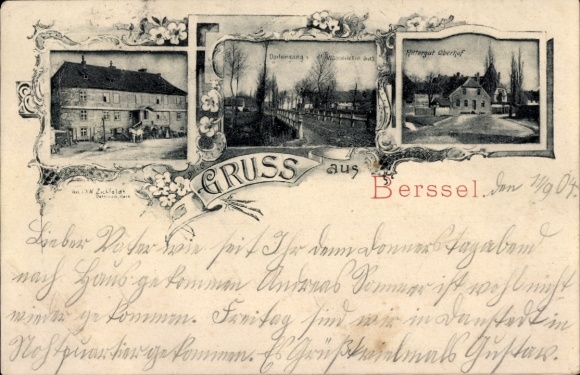 Dorfeingang v. d.
Rittergut Oberhof
GRUSS aus Berssel. den 11/9 04.
Lieber Vater wie seit Ihr denn Donnerstagabend
nach Haus gekommen Andreas Sommer ist wohl nicht
wieder gekommen. Freitag sind wir in Danstedt in
Nohtquartier gekommen. Es Grüßt vielmals Gustav.